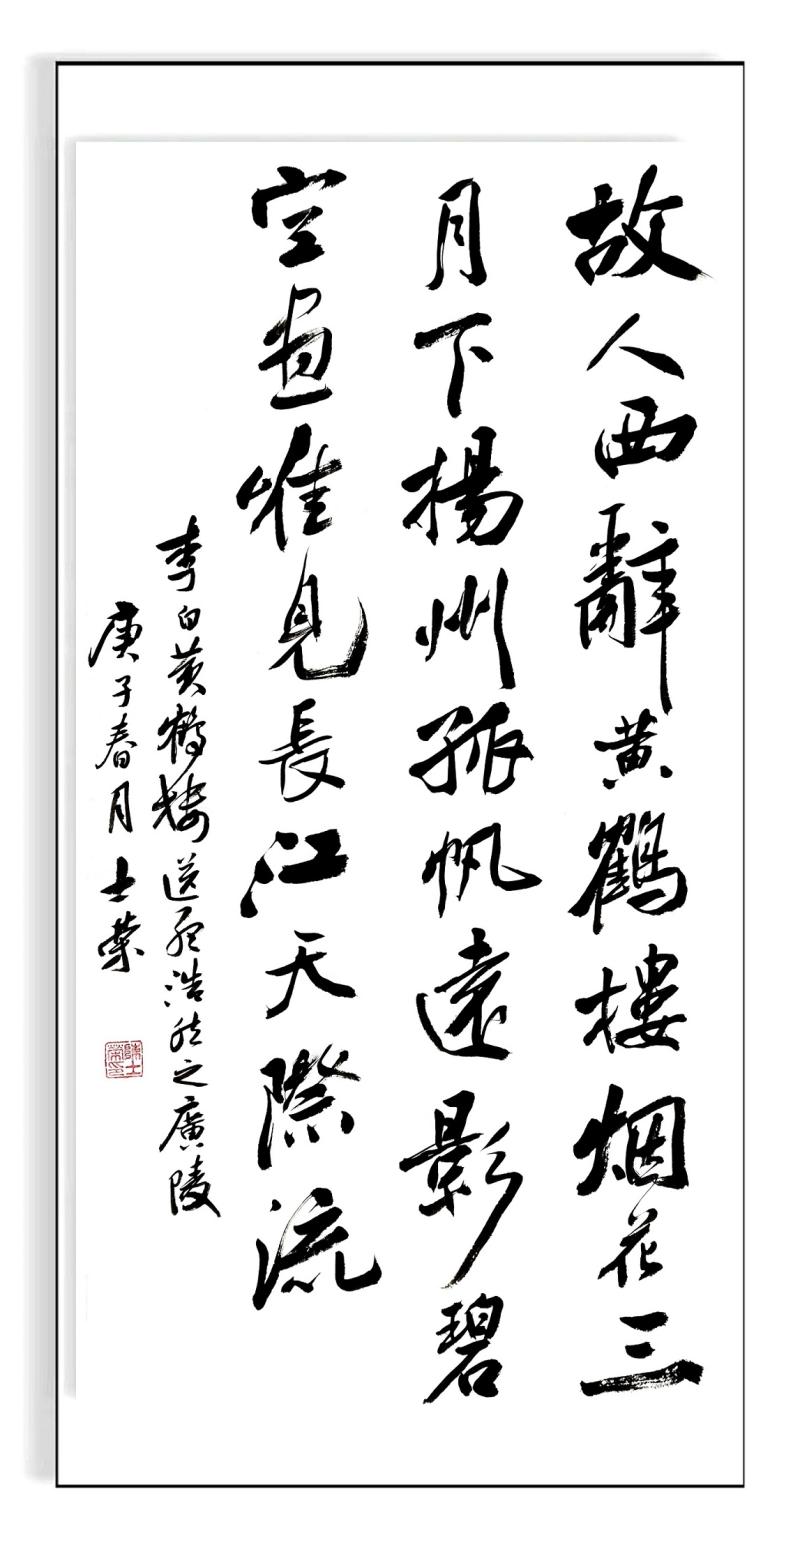 故人西辭黄鶴樓烟花三
月下揚州孤帆遠影碧
空盡惟見長江天際流
李白黄鶴樓送孟浩然之廣陵
庚子春月士榮
陳士榮印